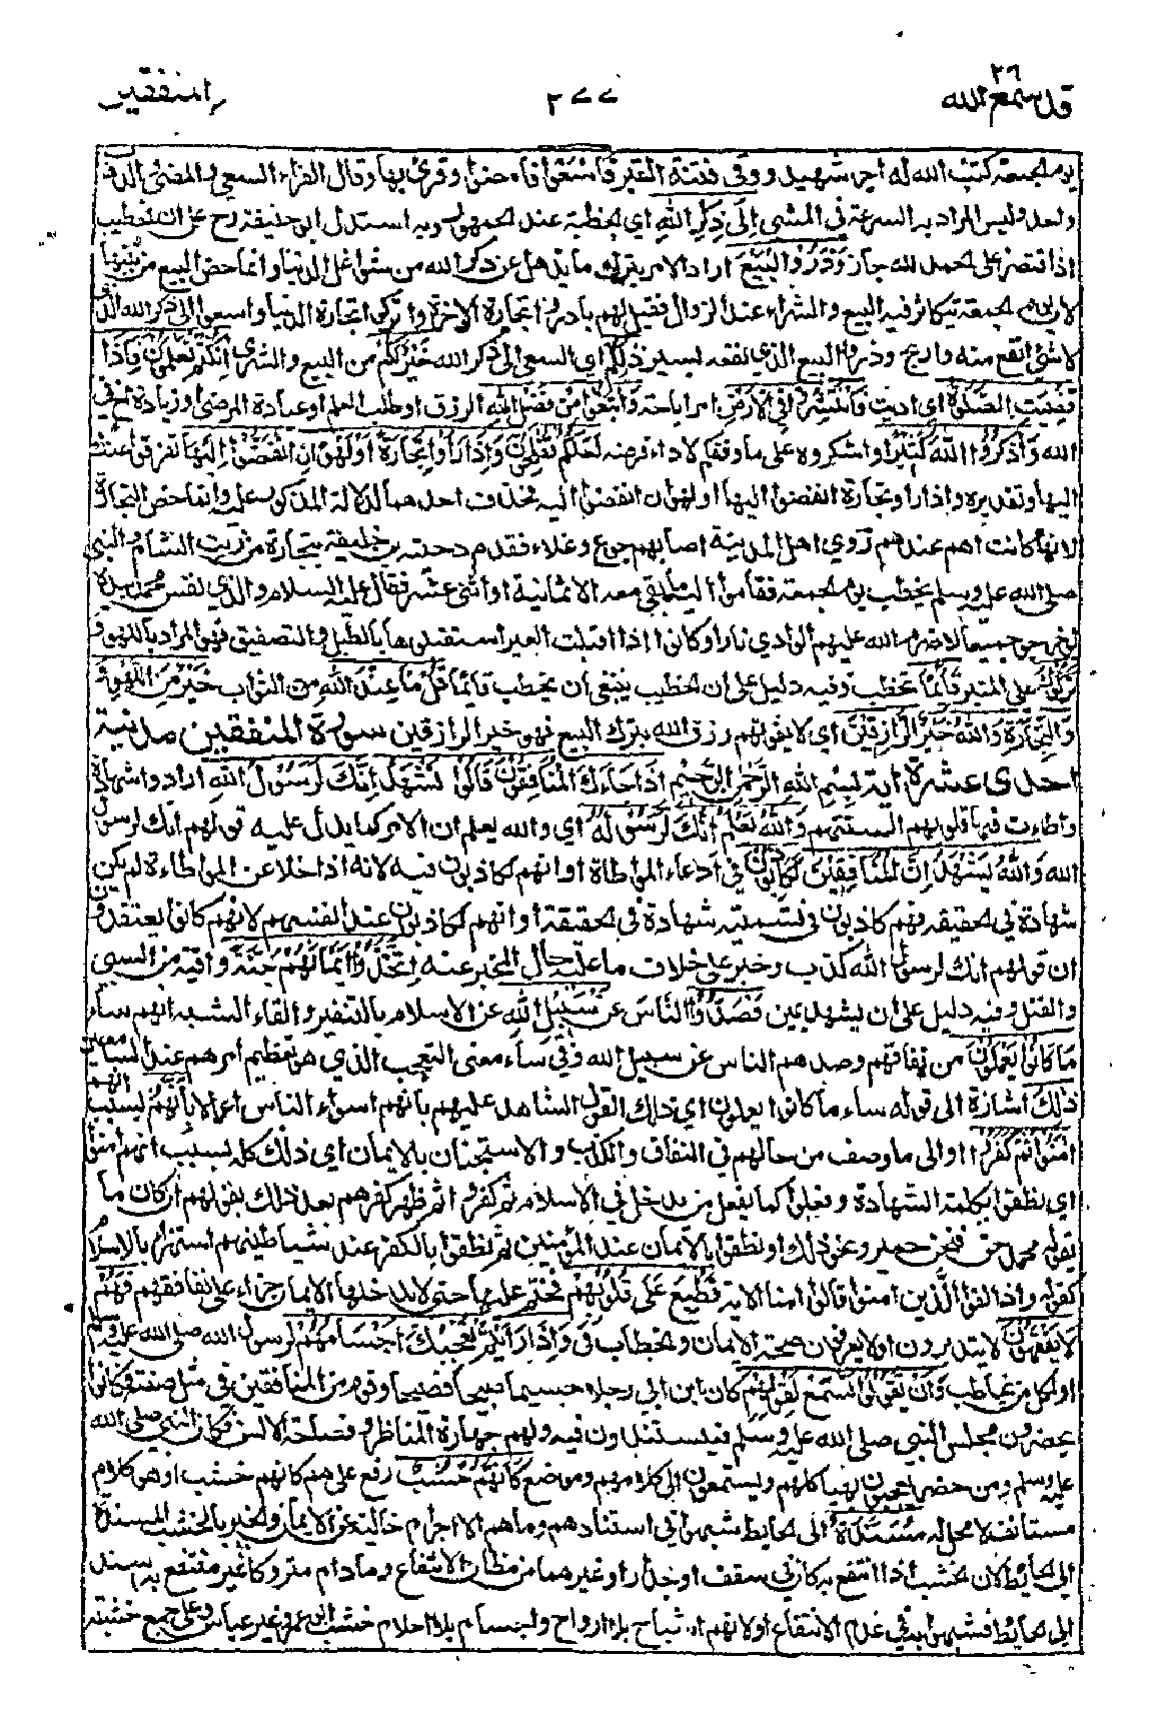 قد سمع الله ٢٦
٢٧٧
المنفقين
يوم لجمعة كتب الله له اجر شهيد ووقى فتنة القبر فاسعوا فامضوا وقرئ بها وقال الفراء السعي والمضي والذهاب
واحد وليس المراد به السرعة في المشي إلى ذكر الله اي لخطبة عند لجمهور وبه استدل ابو حنيفة رح على ان لخطيب
اذا اقتصر على لحمد لله جاز وذروا البيع اراد الامر بترك ما يذهل عن ذكر الله من شواغل الدنيا وانما خص البيع من بينها
لان يوم لجمعة يتكاثر فيه البيع والشراء عند الزوال فقيل لهم بادروا تجارة الاخرة واتركوا تجارة الدنيا واسعوا الى ذكر الله الذي
لا شئ انفع منه واربح وذروا البيع الذي نفعه يسير ذلكم اي السعي الى ذكر الله خير لكم من البيع والشرى ان كنتم تعلمون فاذا
قضيت الصلوة اي اديت فانتشروا في الارض امر اباحة وابتغوا من فضل الله الرزق او طلب العلم او عيادة المرضى او زيادة اخ في
الله واذكروا الله كثيرا واشكروه على ما وفقكم لاداء فرضه لعلكم تفلحون واذا راوا تجارة او لهوا ان انفضوا اليها تفرقوا عنك
اليها وتقديره واذا راوا تجارة انفضوا اليها او لهوا انفضوا اليه فحذف احدهما لدلالة المذكور عليه وانما خص التجارة
لانها كانت اهم عندهم روي اهل المدينة اصابهم جوع وغلاء فقدم دحية بن خليفة بتجارة من زيت الشام والنبي
صلى الله عليه وسلم يخطب يوم لجمعة فقاموا اليه فما بقي معه الا ثمانية او اثنى عشر فقال عليه السلام والذي نفس محمد بيده
لو خرجوا جميعا لاضرم الله عليهم الوادي نارا وكانوا اذا اقبلت العير استقبلوها بالطبل والتصفيق فهو المراد باللهو و
تركوك على المنبر قائما تخطب وفيه دليل على ان لخطيب ينبغي ان يخطب قائما قل ما عند الله من الثواب خير من اللهو و
والتجارة والله خير الرازقين اي لا يفوتهم رزق الله بترك البيع فهو خير الرازقين سورة المنفقين مدنية
احدى عشرة اية بسم الله الرحمن الرحيم اذا جاءك المنافقون قالوا نشهد انك لرسول الله ارادوا شهادة
واطاءت فيها قلوبهم السنتهم والله يعلم انك لرسوله اي والله يعلم ان الامر كما يدل عليه قولهم انك لرسول
الله والله يشهد ان المنافقين لكاذبون في ادعاء المواطاة او انهم لكاذبون فيه لانه اذا خلا عن المواطاءة لم يكن
شهادة في لحقيقة فهم كاذبون في تسميته شهادة في لحقيقة او انهم لكاذبون عند انفسهم لانهم كانوا يعتقدون
ان قولهم انك لرسول الله كذب وخبر على خلاف ما عليه حال المخبر عنه اتخذوا ايمانهم جنة وقاية من السبي
والقتل وفيه دليل على ان يشهد يمين فصدوا الناس عن سبيل الله عن الاسلام بالتنفير والقاء الشبه انهم ساء
ما كانوا يعملون من نفاقهم وصدهم الناس عن سبيل الله وفي ساء معنى التعجب الذي هو تعظيم امرهم عند السامعين
ذلك اشارة الى قوله ساء ما كانوا يعملون اي ذلك القول الشاهد عليهم بانهم اسواء الناس اعمالا بانهم بسبب انهم
امنوا ثم كفروا او الى ما وصف من حالهم في النفاق والكذب والاستجنان بالايمان اي ذلك كله بسبب انهم امنوا
اي نطقوا بكلمة الشهادة وفعلوا كما يفعل من يدخل في الاسلام ثم كفروا ثم ظهر كفرهم بعد ذلك بقولهم ان كان ما
يقوله محمد حق فنحن حمير ونحو ذلك او نطقوا بالايمان عند المؤمنين ثم نطقوا بالكفر عند شياطينهم استهزاء بالاسلام
كقوله واذا لقوا الذين امنوا قالوا امنا الاية فطبع على قلوبهم فختم عليها حتى لا يدخلها الايمان جزاء على نفاقهم فهم
لا يفقهون لا يتدبرون او لا يعرفون صحة الايمان ولخطاب في واذا رايتهم تعجبك اجسامهم لرسول الله صلى الله عليه وسلم
او لكل من يخاطب وان يقولوا تسمع لقولهم كان ابن ابي رجلا جسيما صبيحا فصيحا وقوم من المنافقين في مثل صفته وكانوا
يحضرون مجلس النبي صلى الله عليه وسلم فيستندون فيه ولهم جهارة المناظر وفصاحة الالسن فكان النبي صلى الله
عليه وسلم ومن حضر يعجبون لهياكلهم ويستمعون الى كلامهم وموضع كانهم خشب رفع على هم كانهم خشب او هو كلام
مستانف لا محل له مسندة الى لحايط شبهوا في استنادهم وما هم الا اجرام خالية عن الايمان ولخير بالخشب المسندة
الى لحايط لان لخشب اذا انتفع به كان في سقف او جدار او غيرهما من مظان الانتفاع وما دام متروكا غير منتفع به اسند
الى لحايط فشبهوا به في عدم الانتفاع او لانهم اشباح بلا ارواح واجسام بلا احلام خشب ابو عمرو غير عباس وعلي جمع خشبة